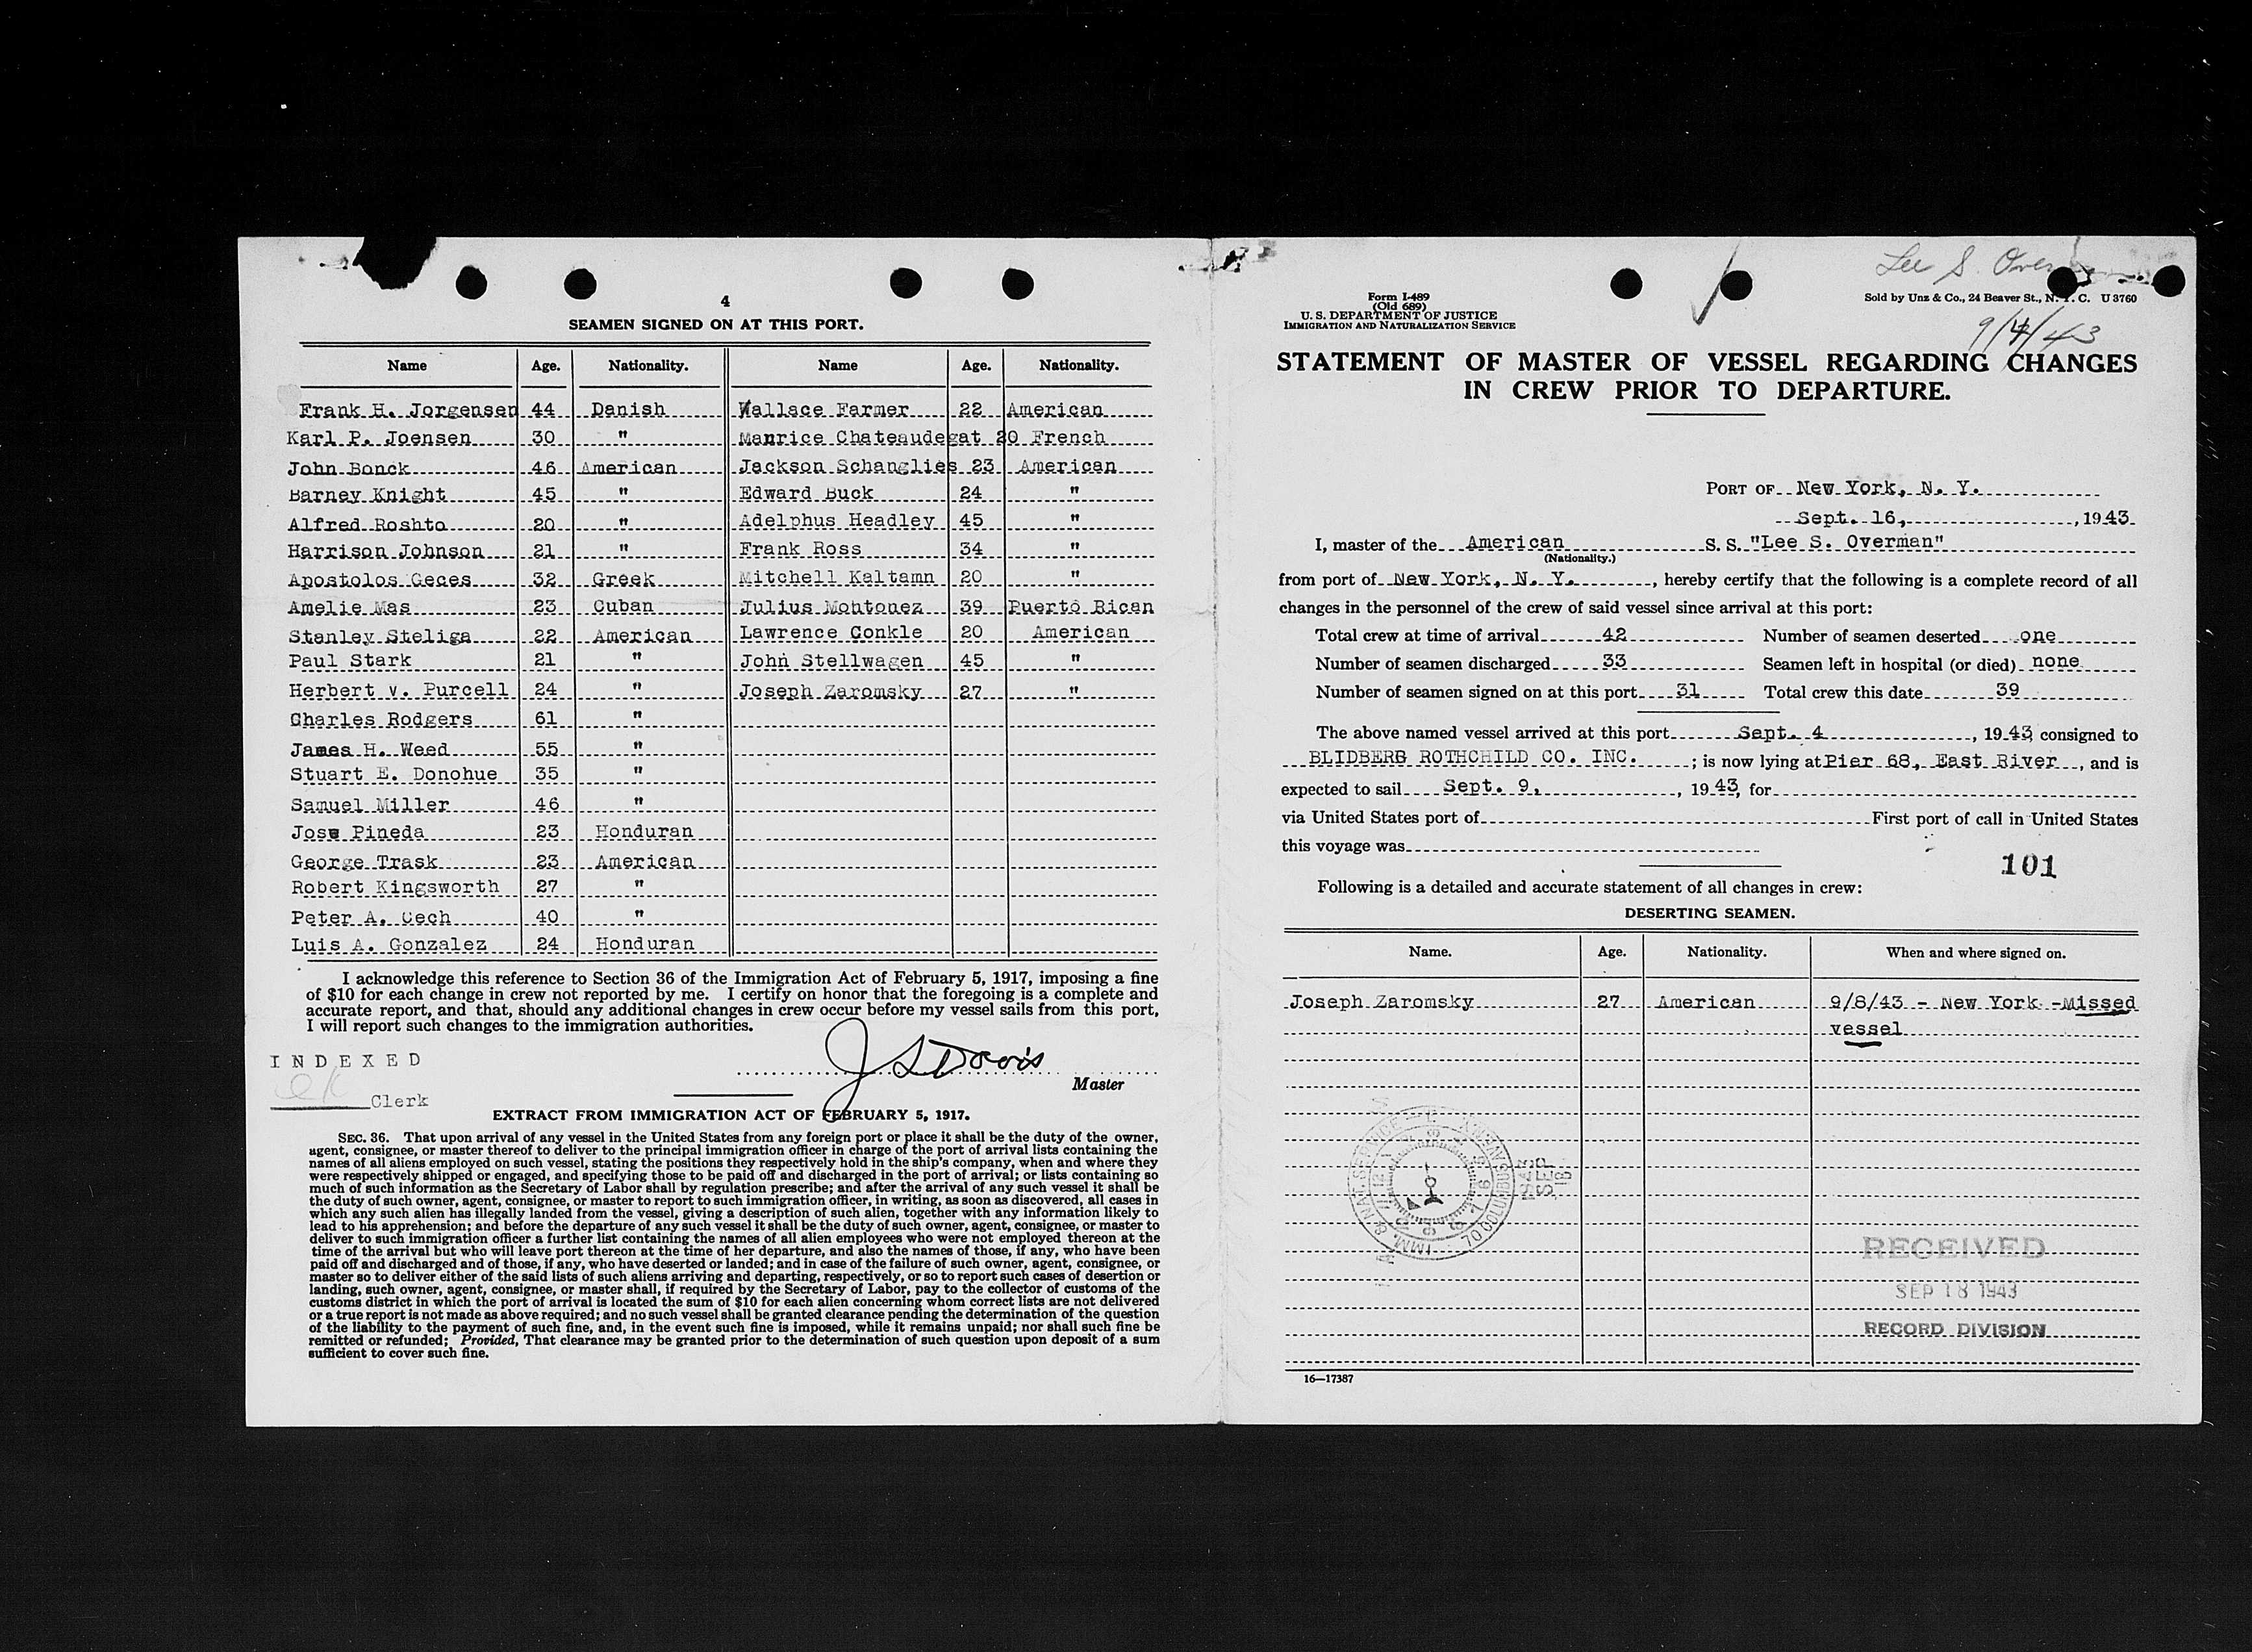 4
SEAMEN SIGNED ON AT THIS PORT.
Name Age. Nationality. Name Age. Nationality.
Frank H. Jorgensen 44 Danish Wallace Farmer 22 American
Karl P. Joensen 30 " Maurice Chateaudegat 20 French
John Bonck 46 American Jackson Schanglies 23 American
Barney Knight 45 " Edward Buck 24 "
Alfred Roshto 20 " Adelphus Headley 45 "
Harrison Johnson 21 " Frank Ross 34 "
Apostolos Geces 32 Greek Mitchell Kaltamn 20 "
Amelie Mas 23 Cuban Julius Montonez 39 Puerto Rican
Stanley Steliga 22 American Lawrence Conkle 20 American
Paul Stark 21 " John Stellwagen 45 "
Herbert v. Purcell 24 " Joseph Zaromsky 27 "
Charles Rodgers 61 "
James H. Weed 55 "
Stuart E. Donohue 35 "
Samuel Miller 46 "
Jose Pineda 23 Honduran
George Trask 23 American
Robert Kingsworth 27 "
Peter A. Cech 40 "
Luis A. Gonzalez 24 Honduran
I acknowledge this reference to Section 36 of the Immigration Act of February 5, 1917, imposing a fine
of $10 for each change in crew not reported by me. I certify on honor that the foregoing is a complete and
accurate report, and that, should any additional changes in crew occur before my vessel sails from this port,
I will report such changes to the immigration authorities.
INDEXED
J S Davis
Master
Clerk
EXTRACT FROM IMMIGRATION ACT OF FEBRUARY 5, 1917.
SEC. 36. That upon arrival of any vessel in the United States from any foreign port or place it shall be the duty of the owner,
agent, consignee, or master thereof to deliver to the principal immigration officer in charge of the port of arrival lists containing the
names of all aliens employed on such vessel, stating the positions they respectively hold in the ship's company, when and where they
were respectively shipped or engaged, and specifying those to be paid off and discharged in the port of arrival; or lists containing so
much of such information as the Secretary of Labor shall by regulation prescribe; and after the arrival of any such vessel it shall be
the duty of such owner, agent, consignee, or master to report to such immigration officer, in writing, as soon as discovered, all cases in
which any such alien has illegally landed from the vessel, giving a description of such alien, together with any information likely to
lead to his apprehension; and before the departure of any such vessel it shall be the duty of such owner, agent, consignee, or master to
deliver to such immigration officer a further list containing the names of all alien employees who were not employed thereon at the
time of the arrival but who will leave port thereon at the time of her departure, and also the names of those, if any, who have been
paid off and discharged and of those, if any, who have deserted or landed; and in case of the failure of such owner, agent, consignee, or
master so to deliver either of the said lists of such aliens arriving and departing, respectively, or so to report such cases of desertion or
landing, such owner, agent, consignee, or master shall, if required by the Secretary of Labor, pay to the collector of customs of the
customs district in which the port of arrival is located the sum of $10 for each alien concerning whom correct lists are not delivered
or a true report is not made as above required; and no such vessel shall be granted clearance pending the determination of the question
of the liability to the payment of such fine, and, in the event such fine is imposed, while it remains unpaid; nor shall such fine be
remitted or refunded; Provided, That clearance may be granted prior to the determination of such question upon deposit of a sum
sufficient to cover such fine.
Lee S. Over
Form I-489
(Old 689)
U. S. DEPARTMENT OF JUSTICE
IMMIGRATION AND NATURALIZATION SERVICE
Sold by Unz & Co., 24 Beaver St., N. Y. C. U 3760
9/4/43
STATEMENT OF MASTER OF VESSEL REGARDING CHANGES
IN CREW PRIOR TO DEPARTURE.
PORT OF New York, N. Y.
Sept. 16, , 1943
I, master of the American S. S. "Lee S. Overman"
(Nationality.)
from port of New York, N. Y. , hereby certify that the following is a complete record of all
changes in the personnel of the crew of said vessel since arrival at this port:
Total crew at time of arrival 42 Number of seamen deserted one
Number of seamen discharged 33 Seamen left in hospital (or died) none
Number of seamen signed on at this port 31 Total crew this date 39
The above named vessel arrived at this port Sept. 4 , 1943, consigned to
BLIDBERG ROTHCHILD CO. INC. ; is now lying at Pier 68, East River , and is
expected to sail Sept. 9, , 1943, for
via United States port of First port of call in United States
this voyage was
101
Following is a detailed and accurate statement of all changes in crew:
DESERTING SEAMEN.
Name. Age. Nationality. When and where signed on.
Joseph Zaromsky 27 American 9/8/43 - New York - Missed
vessel
IMM. & NAT. SERVICE
70 COLUMBUS AVE. N.Y.
1943
SEP
18
RECEIVED
SEP 18 1943
RECORD DIVISION
16—17387